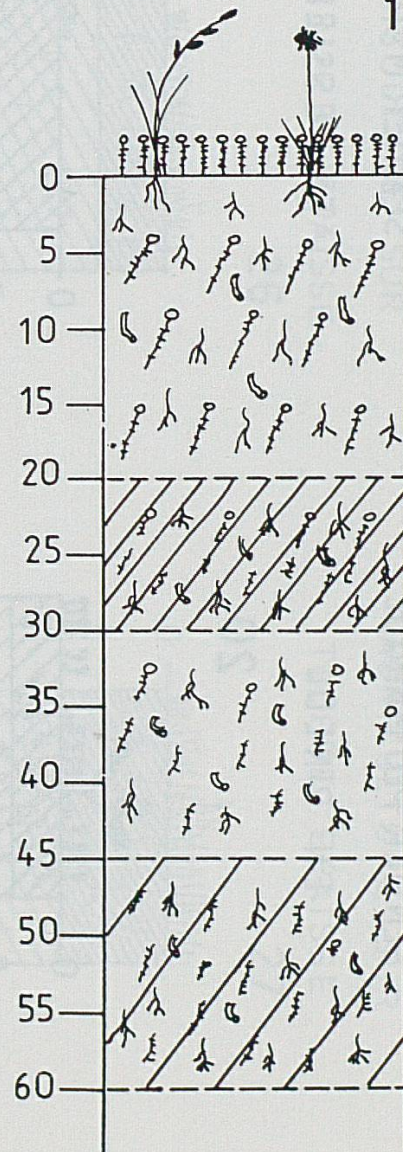 1
0
5
10
15
20
25
30
35
40
45
50
55
60